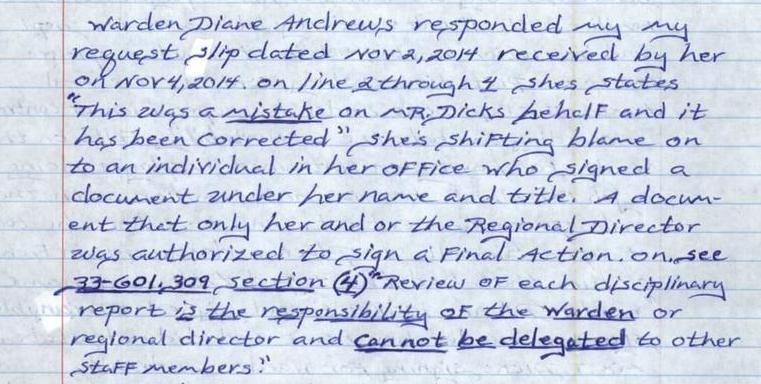 Warden Diane Andrews responded my my
request slip dated Nov 2, 2014 received by her
on Nov 4, 2014. on line 2 through 4 shes states
"This was a mistake on MR. Dicks behalf and it
has been corrected" she's shifting blame on
to an individual in her office who signed a
document under her name and title. A docum-
ent that only her and or the Regional Director
was authorized to sign a Final Action. on. see
33-601.309 section (4) "Review of each disciplinary
report is the responsibility of the Warden or
regional director and cannot be delegated to other
staff members."